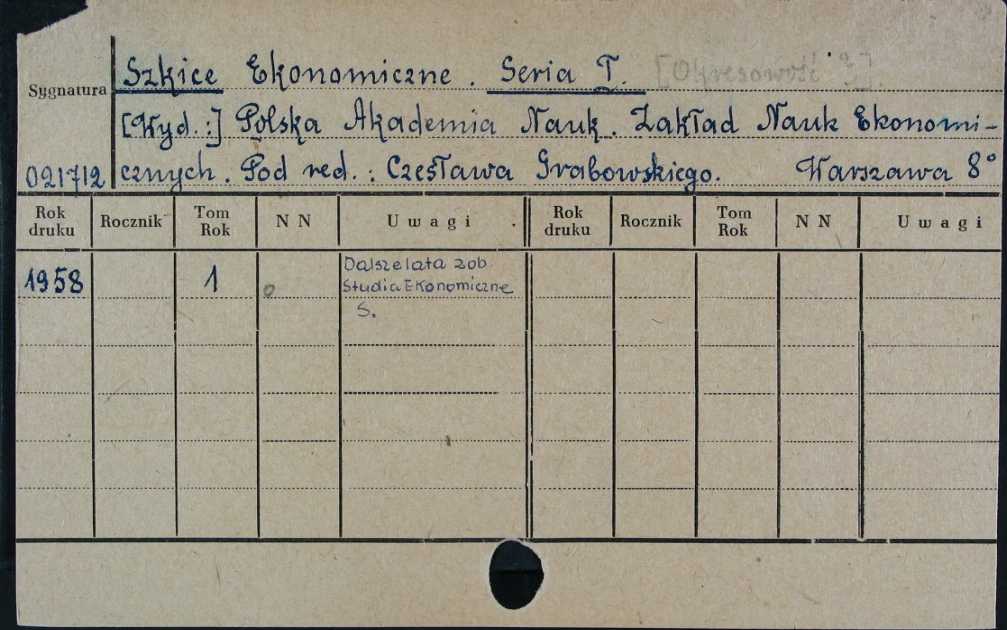 Szkice Ekonomiczne. Seria T. [Okresowość ?].
Sygnatura
[Wyd.:] Polska Akademia Nauk. Zakład Nauk Ekonomi-
021712 cznych. Pod red.: Czesława Grabowskiego. Warszawa 8°
Rok druku Rocznik Tom Rok N N Uwagi Rok druku Rocznik Tom Rok N N Uwagi
1958 1 0 Dalsze lata zob.
Studia Ekonomiczne
S.